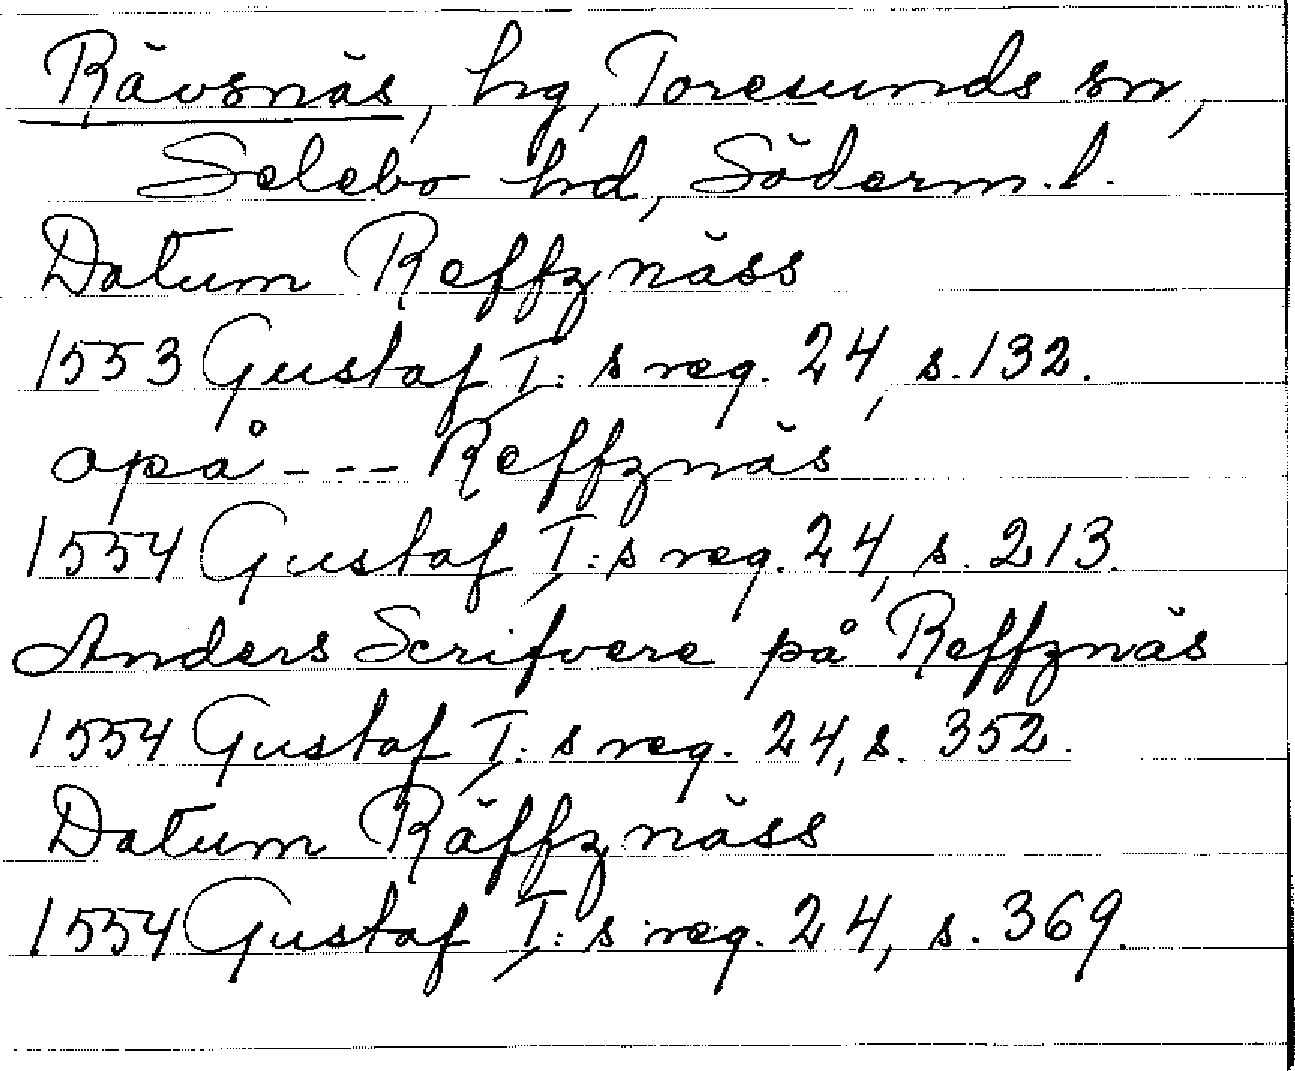 Rävsnäs, hg, Toresunds sn,
Selebo hd, Söderm. l.
Datum Reffznäss
1553 Gustaf I: s reg. 24, s. 132.
opå --- Reffznäs
1554 Gustaf I: s reg. 24, s. 213.
Anders Scrifvere på Reffznäs
1554 Gustaf I: s reg. 24, s. 352.
Datum Räffznäss
1554 Gustaf I: s reg. 24, s. 369.